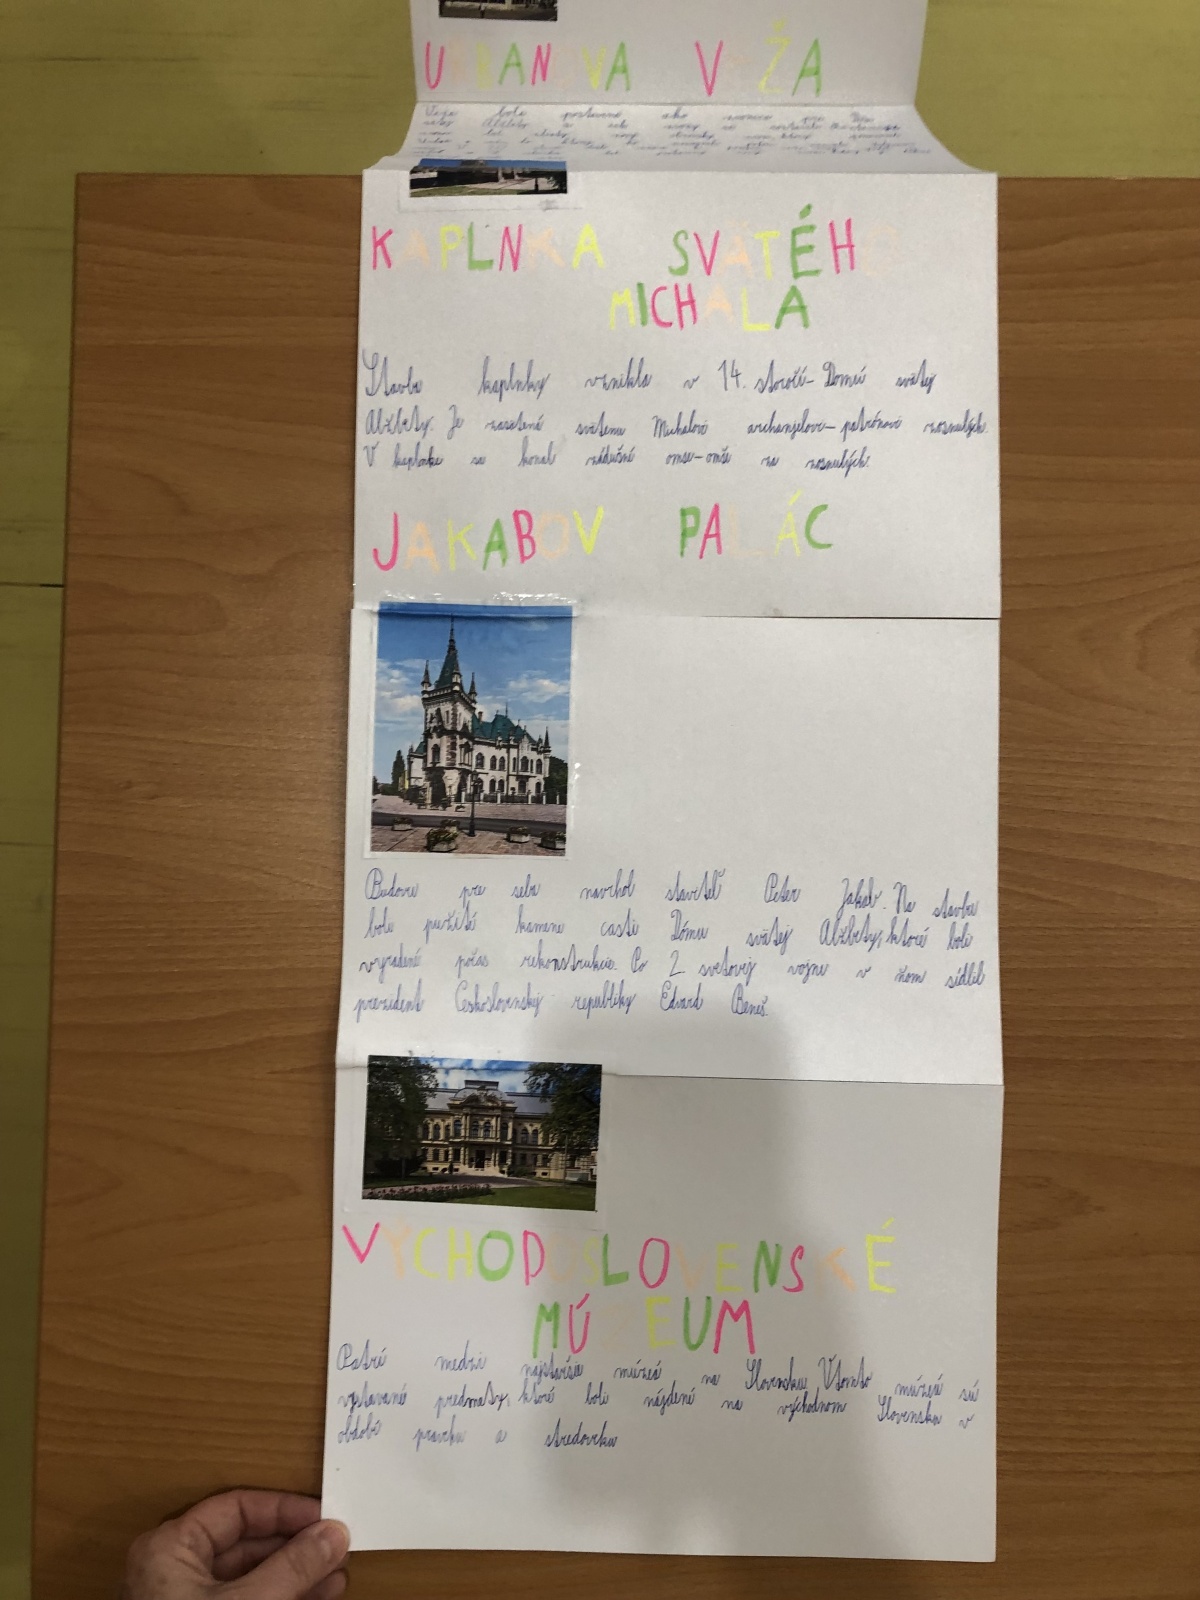 URBANOVA VEŽA
Veža bola postavená ako zvonica pre Dóm
KAPLNKA SVÄTÉHO
MICHALA
Stavba kaplnky vznikla v 14. storočí- Domú svätej
Alžbety. Je zasätená svätemu Michalovi archanjelovi-patrónovi zosnulých.
V kaplnke sa konal zádušné omse-omše za zosnulých.
JAKABOV PALÁC
Budovu pre seba navrhol staviteľ Peter Jakab. Na stavbu
bola použité kamene casti Dómu svätej Alžbety, ktoré boli
vyradené počas rekonstrukcie. Po 2 svetovej vojne v ňom sídlil
prezident Československej republiky Edvard Beneš.
VÝCHODOSLOVENSKÉ
MÚZEUM
Patrí medzi najstaršie múzeá na Slovensku V tomto múzeá sú
vystavané predmaty, ktoré boli nájdené na východnom Slovensku v
období praveku a stredoveku